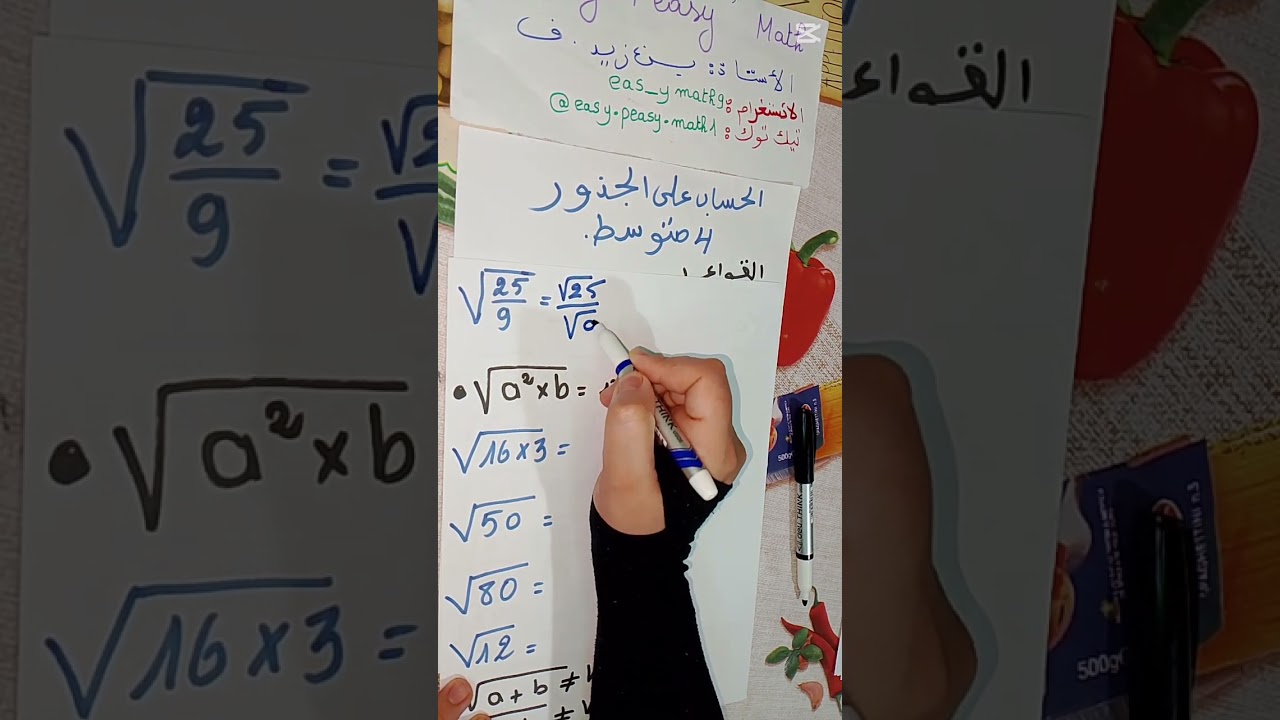 y Peasy Math
الأستاذة: بن زيد . ف
الانستغرام: eas_y math9
تيك توك: @easy.peasy.math1
الحساب على الجذور
4 متوسط.
القواعد
√25/9 = √25/√9
• √a²×b =
√16×3 =
√50 =
√80 =
√12 =
√a+b ≠
500g